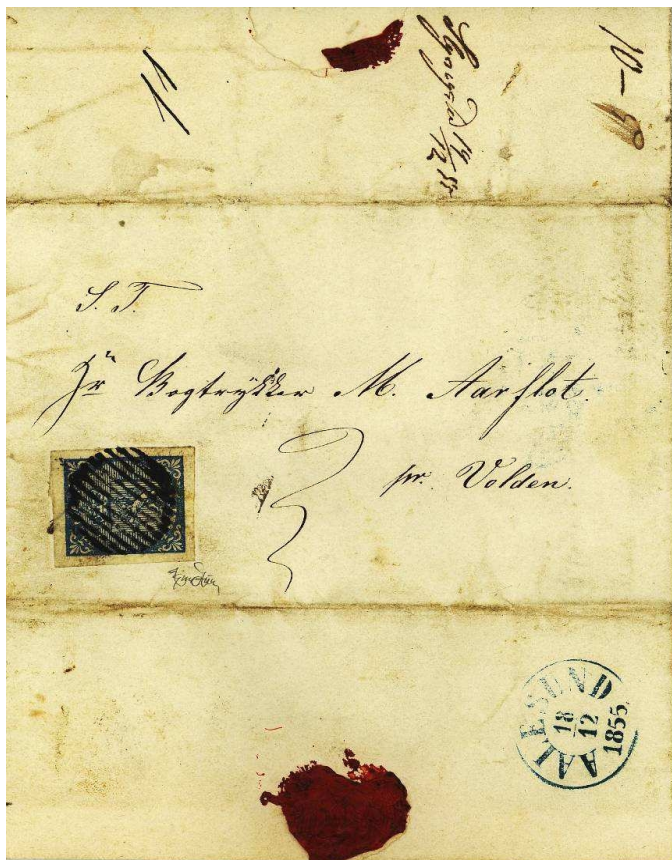 11
14/12 55
10-
S. T.
Hr Bogtrykker M. Aarflot.
pr. Volden.
AALESUND
18
12
1855